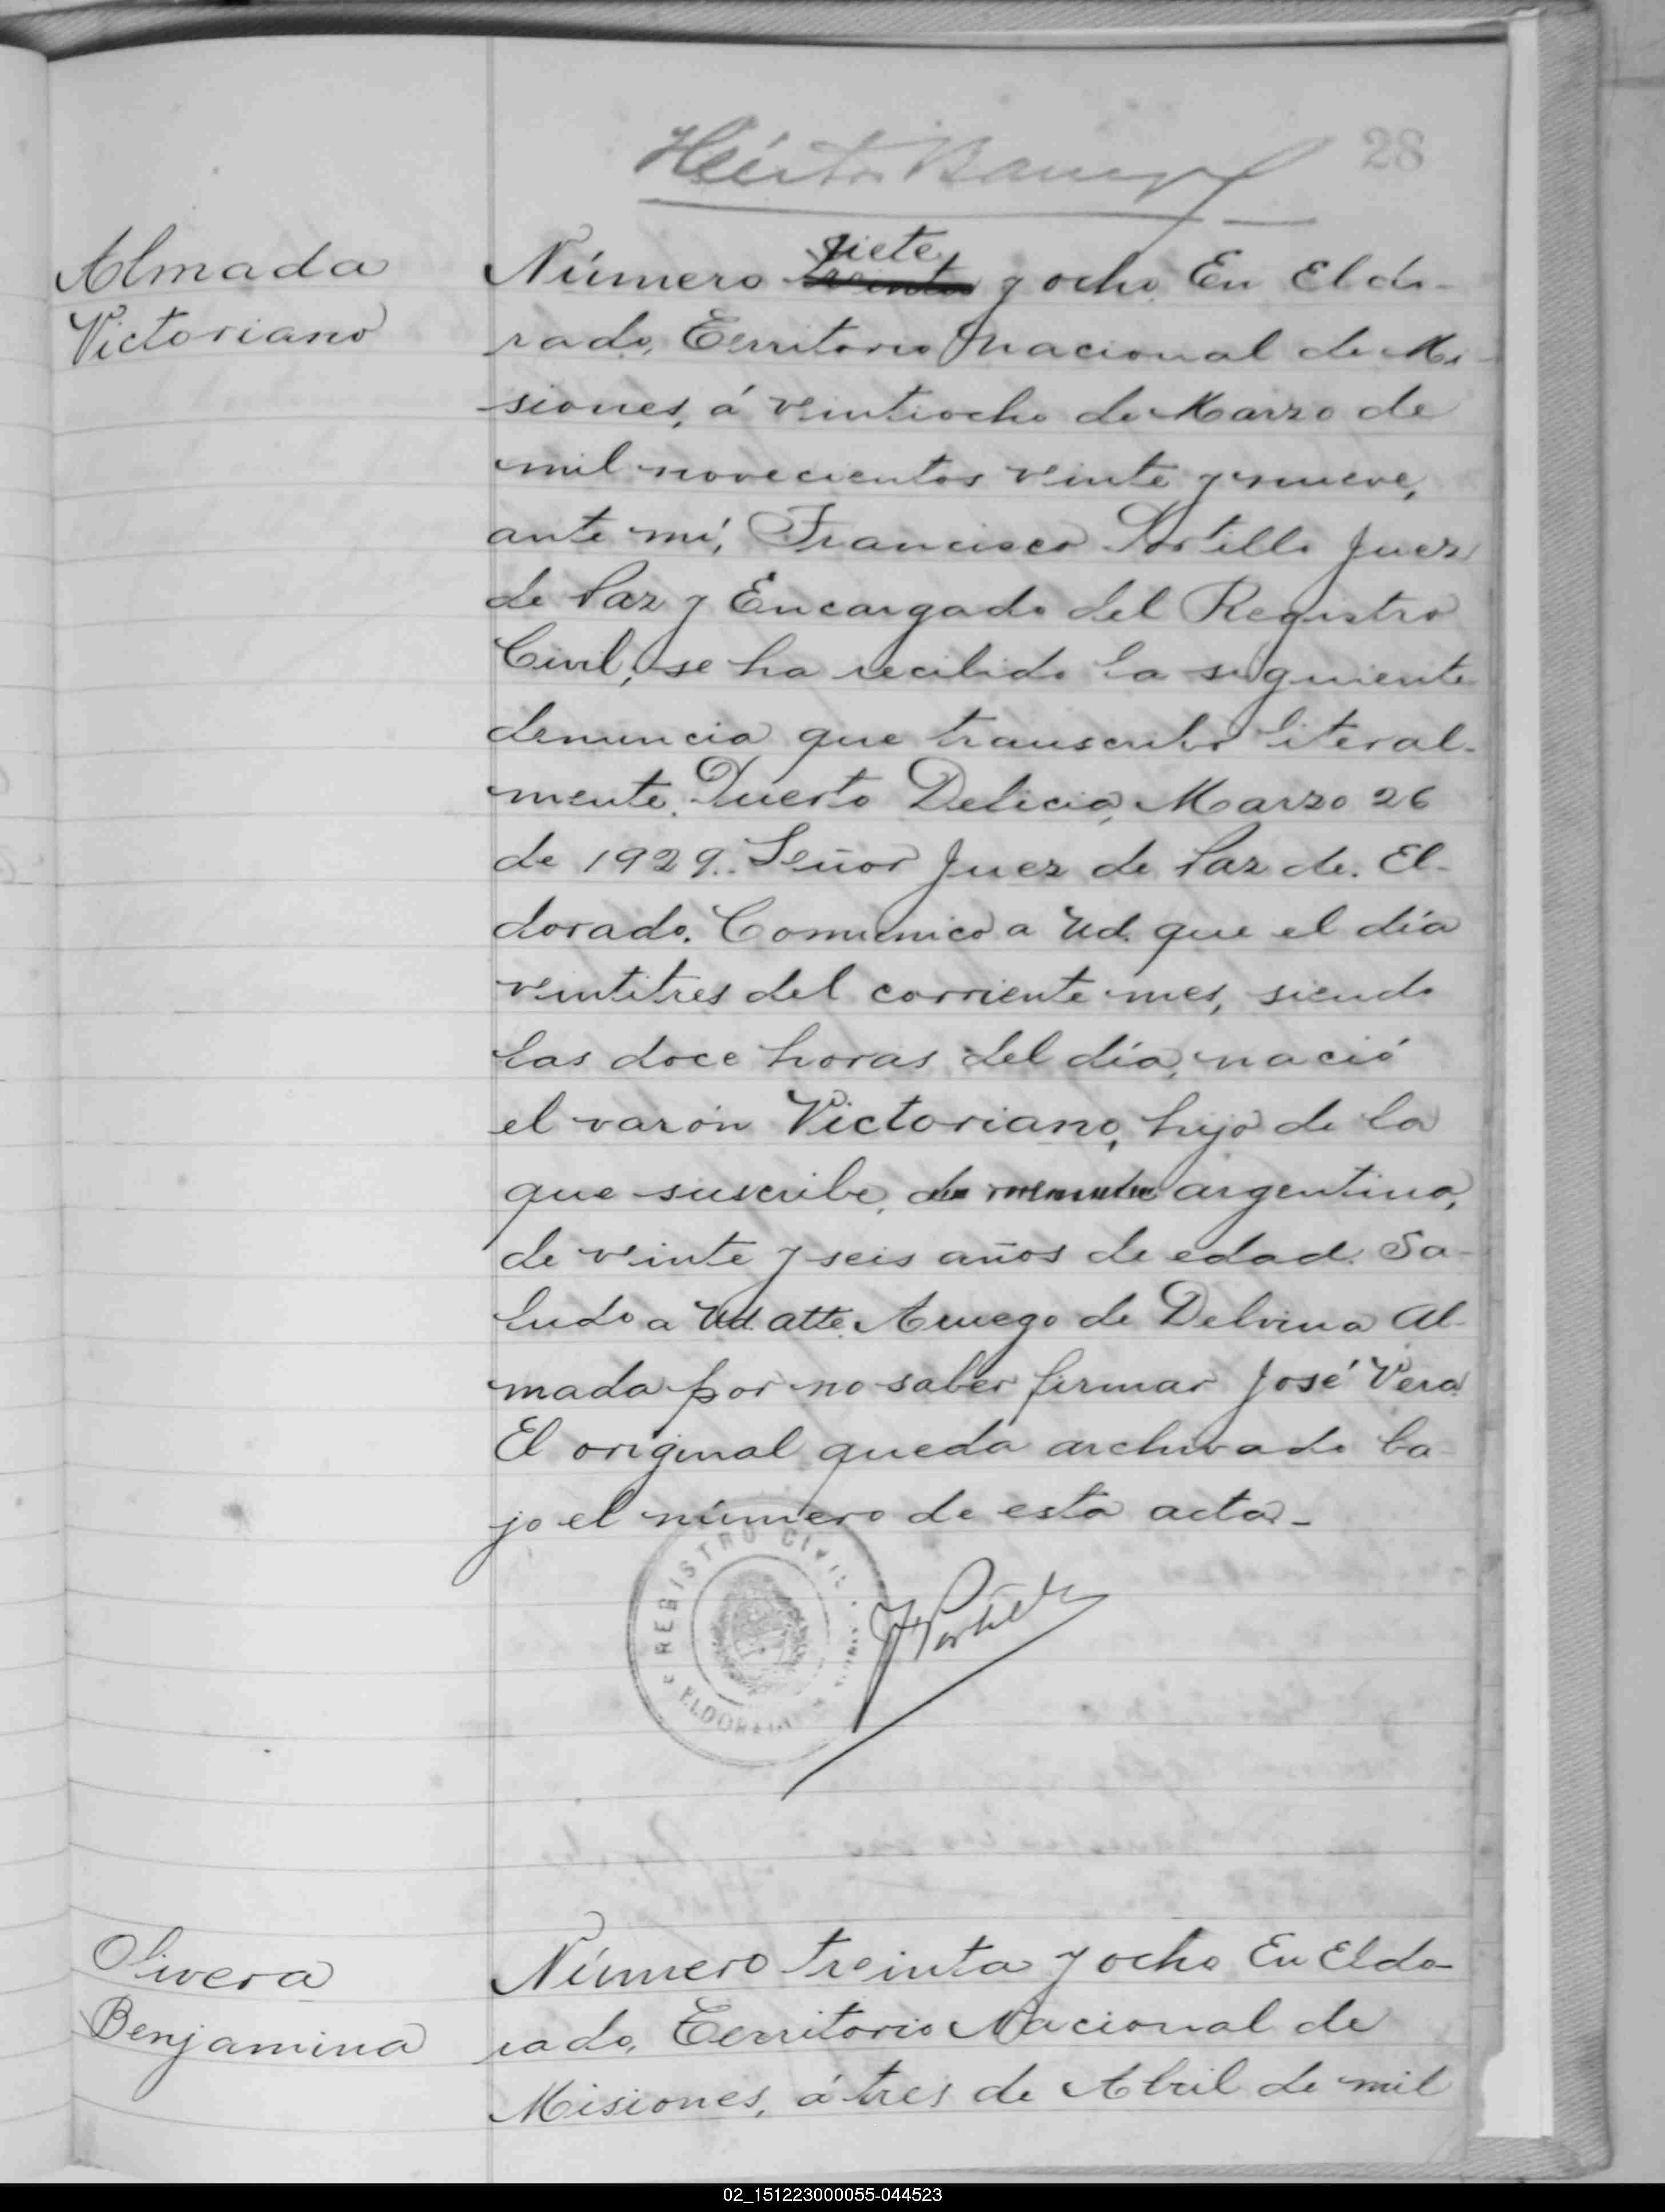 28
Héctor
Almada
Victoriano
Número treinta siete y ocho. En Eldo-
rado, Territorio Nacional de Mi-
siones, á veintiocho de Marzo de
mil novecientos veinte y nueve,
ante mí, Francisco Portillo Juez
de Paz y Encargado del Registro
Civil, se ha recibido la siguiente
denuncia que transcribo literal-
mente. Puerto Delicia, Marzo 26
de 1929. Señor Juez de Paz de El-
dorado. Comunico a Ud. que el día
veintitres del corriente mes, siendo
las doce horas del día, nació
el varón Victoriano, hijo de la
que suscribe, argentina,
de veinte y seis años de edad. Sa-
ludo a Ud. atte. A ruego de Delvina Al-
mada por no saber firmar José Vera.
El original queda archivado ba-
jo el número de esta acta.-
REGISTRO CIVIL
ELDORADO
F Portillo
Olivera
Benjamina
Número treinta y ocho En Eldo-
rado, Territorio Nacional de
Misiones, á tres de Abril de mil
02_151223000055-044523